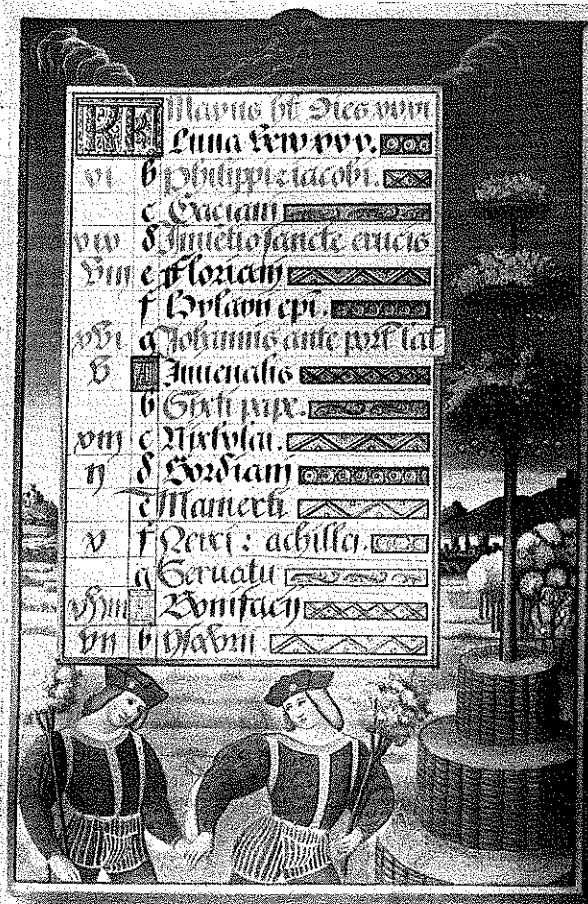 KL Mayus ht Dies xxxi
Luna xxx.
xi b Philippi z iacobi.
c
xix d Inuētio sancte crucis
viij e Floriani
f Hylarii epi.
xvi g Johannis ante port lat
v A Iuuenalis
b Sixti pape.
xiij c Nicholai.
ij d Gordiani
e Mamerti
x f Nerei : achillei.
g Seruatii
xviij A Bonifacij
vij b